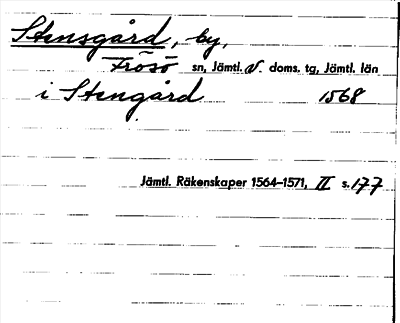 Stensgård, by,
Frösö sn, Jämtl. V. doms. tg, Jämtl. län
i Stengård 1568
Jämtl. Räkenskaper 1564–1571, II s. 177